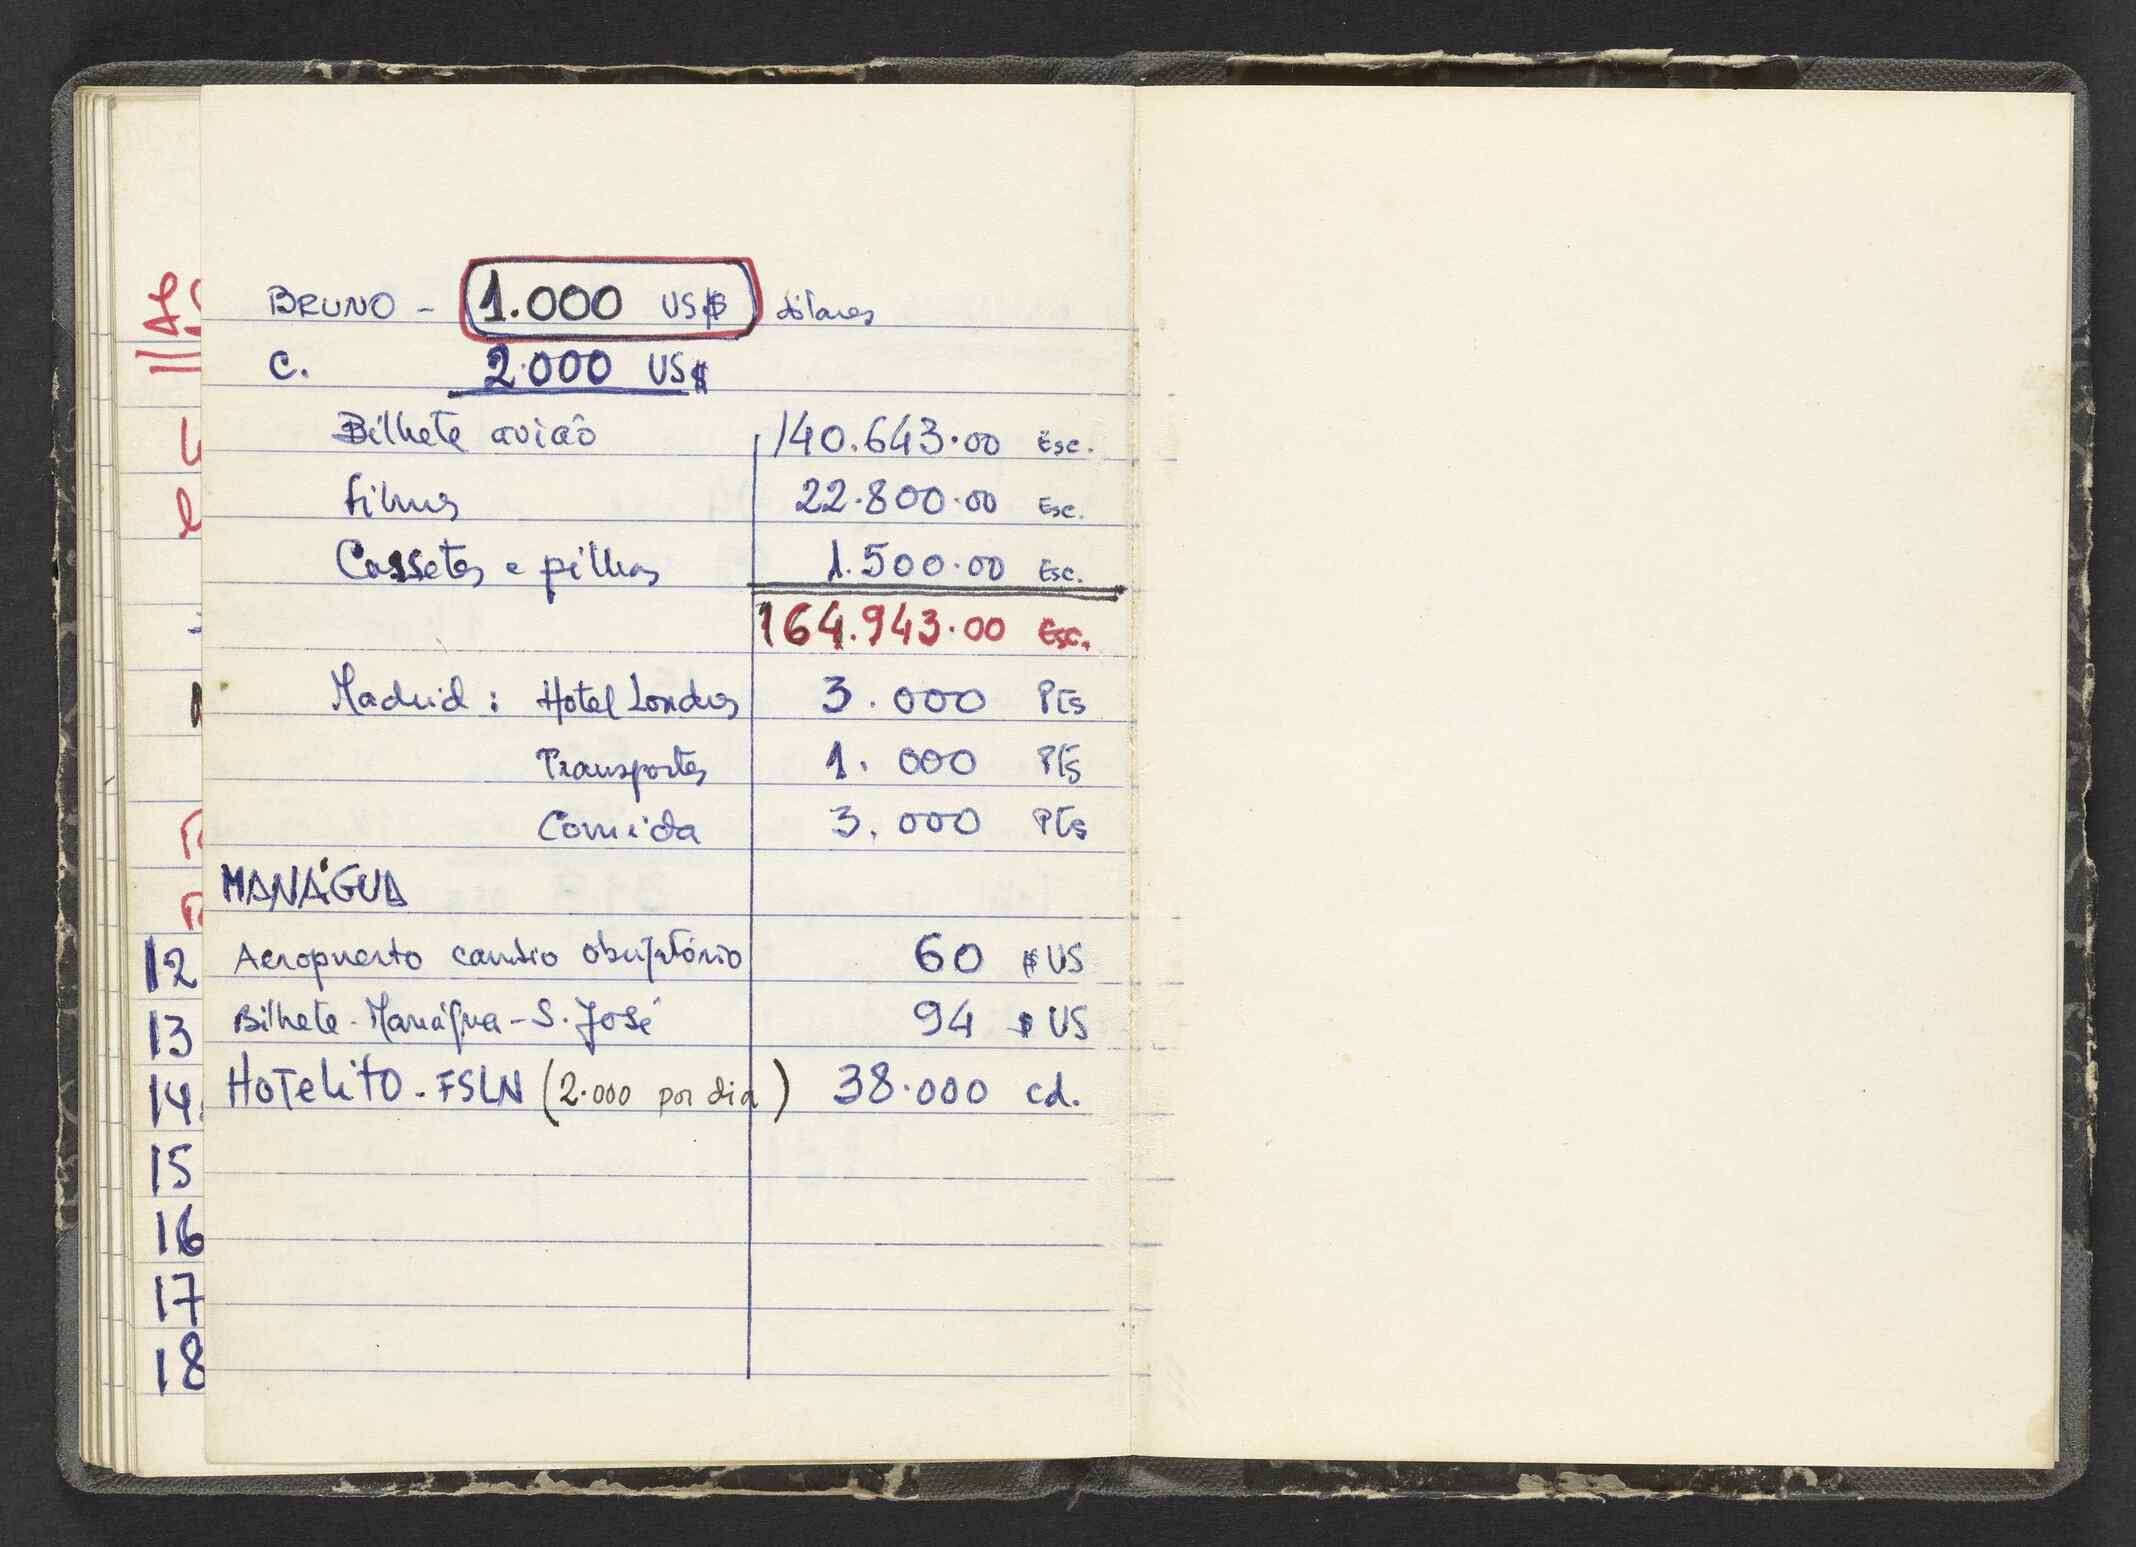 BRUNO - 1.000 US$ dólares
C. 2.000 US$
Bilhete avião 140.643.00 Esc.
filmes 22.800.00 Esc.
Cassetes e pilhas 1.500.00 Esc.
164.943.00 Esc.
Madrid : Hotel Londres 3.000 PTs
Transportes 1.000 PTs
Comida 3.000 PTs
MANÁGUA
Aeropuerto cambio obrigatório 60 $ US
Bilhete - Manágua - S. José 94 $ US
Hotelito - FSLN (2.000 por dia) 38.000 cd.
12
13
14
15
16
17
18